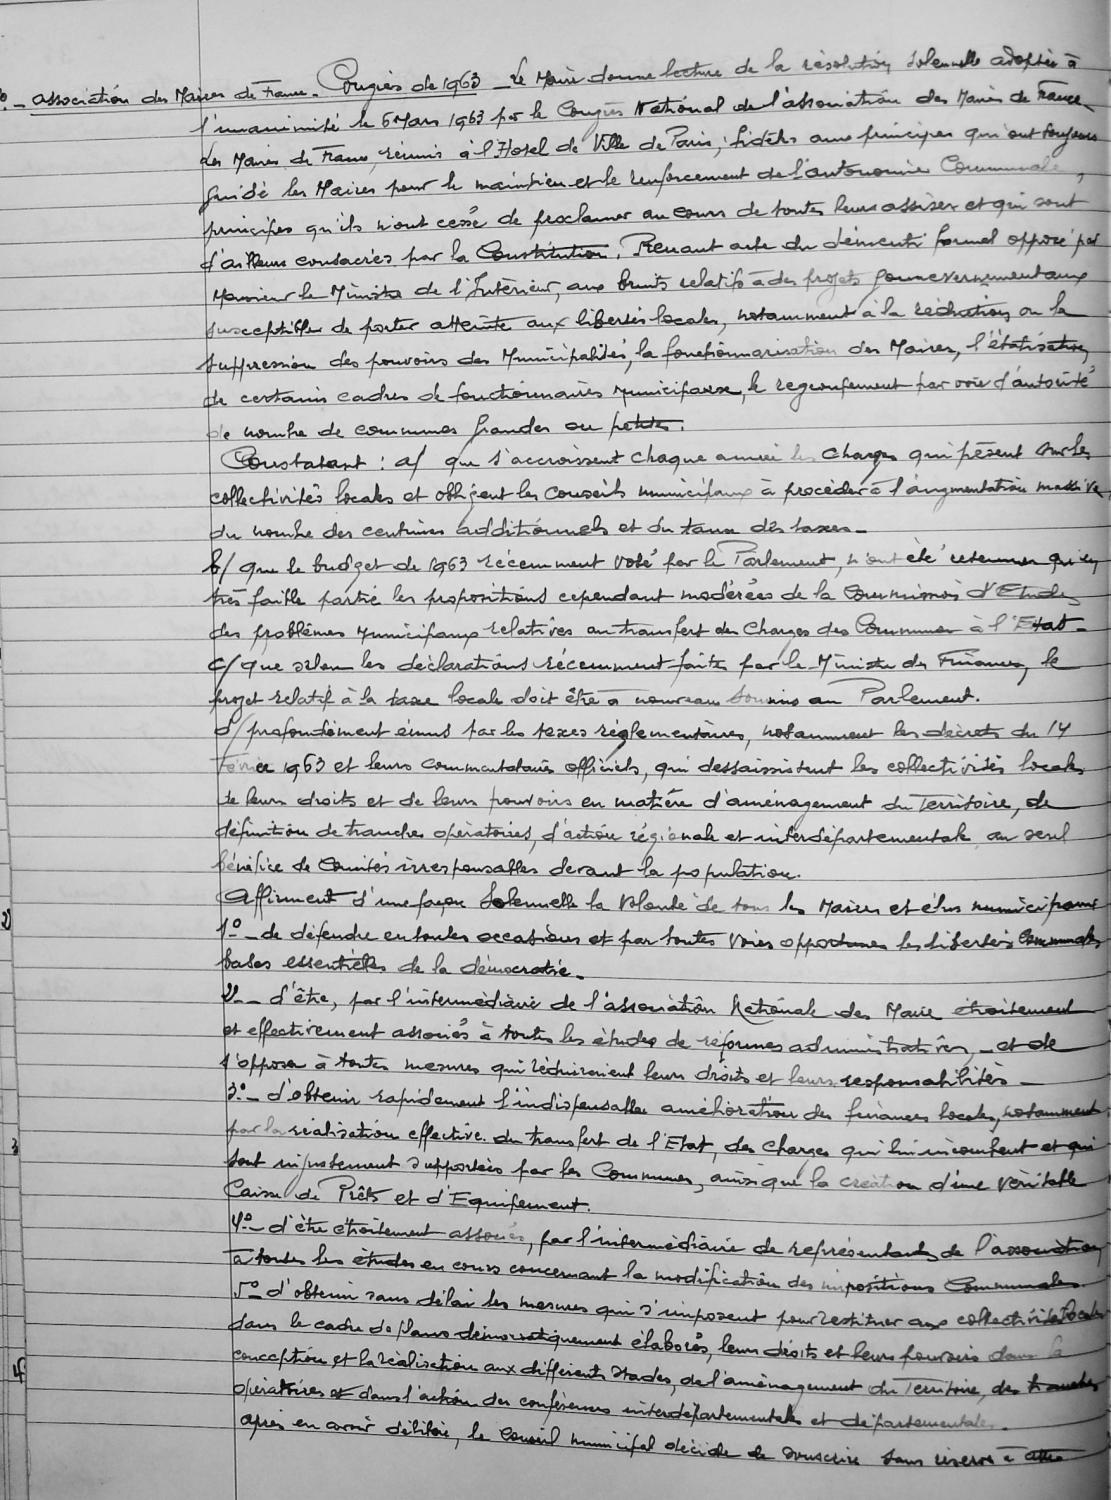 º. - association des Maires de France. Congrès de 1963 - Le Maire donne lecture de la résolution solennelle adoptée à
l'unanimité le 6 Mars 1963 par le Congrès National de l'association des Maires de France.
Les Maires de France, réunis à l'Hotel de Ville de Paris, fidèles aux principes qui ont toujours
guidé les Maires pour le maintien et le renforcement de l'autonomie Communale,
principes qu'ils n'ont cessé de proclamer au cours de toutes leurs assises et qui sont
d'ailleurs consacrés par la Constitution. Prenant acte du démenti formel opposé par
Monsieur le Ministre de l'Intérieur, aux bruits relatifs à des projets gouvernementaux
susceptibles de porter atteinte aux libertés locales, notamment à la réduction ou la
suppression des pouvoirs des Municipalités, la fonctionnarisation des Maires, l'étatisation
de certains cadres de fonctionnaires Municipaux, le regroupement par voie d'autorité
de nombre de communes grandes ou petites.
Constatant : a/ que s'accroissent chaque année les charges qui pèsent sur les
collectivités locales et obligent les Conseils municipaux à procéder à l'augmentation massive
du nombre des centimes additionnels et du taux des taxes -
b/ que le budget de 1963 récemment voté par le Parlement, n'ont été retenues qu'en
très faible partie les propositions cependant modérées de la Commission d'Etudes
des problèmes Municipaux relatives au transfert des Charges des Communes à l'Etat -
c/ que selon les déclarations récemment faites par le Ministre des Finances, le
projet relatif à la taxe locale doit être à nouveau soumis au Parlement.
d/ profondément émus par les textes réglementaires, notamment les décrets du 14
Février 1963 et leurs commentateurs officiels, qui dessaisissent les collectivités locales
de leurs droits et de leurs pouvoirs en matière d'aménagement du Territoire, de
définition de tranches opératoires, d'action régionale et interdépartementale au seul
bénéfice de Comités irresponsables devant la population.
Affirment d'une façon Solennelle la Volonté de tous les Maires et élus municipaux
1º - de défendre en toutes occasions et par toutes voies opportunes les libertés Communales
bases essentielles de la démocratie.
2º - d'être, par l'intermédiaire de l'association Nationale des Maire étroitement
et effectivement associés à toutes les études de réformes administratives, - et de
s'opposer à toutes mesures qui réduiraient leurs droits et leurs responsabilités -
3º - d'obtenir rapidement l'indispensable amélioration des finances locales, notamment
par la réalisation effective du transfert de l'Etat, des charges qui lui incombent et qui
sont injustement supportées par les Communes, ainsi que la création d'une véritable
Caisse de Prêts et d'Equipement.
4º - d'être étroitement associés, par l'intermédiaire de représentants de l'association
à toutes les études en cours concernant la modification des impositions Communales.
5º d'obtenir sans délai les mesures qui s'imposent pour restituer aux collectivités locales
dans le cadre de plans démocratiquement élaborés, leurs droits et leurs pouvoirs dans la
conception et la réalisation aux différents stades, de l'aménagement du Territoire, des tranches
opératoires et dans l'action des conférences interdépartementales et départementales.
après en avoir délibéré, le Conseil municipal décide de souscrire sans réserve à
2)
3
4